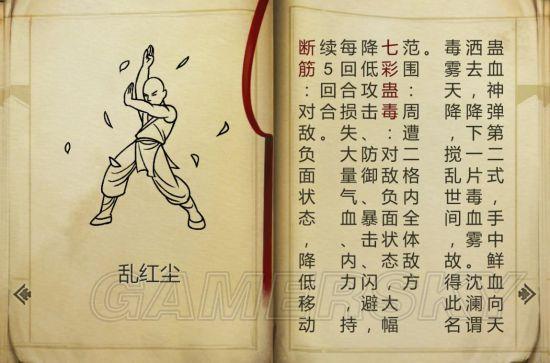 蛊血神弹第二式,手中鲜血向天
洒去,降下一片毒血雾。沈澜谓
毒雾天降,搅乱世间,故得此名
。
范围:周遭二格内全体敌方
七彩蛊毒:对敌负面状态,大幅
降低攻击、防御、暴击、闪避,
每回合损失大量气血、内力,持
续5回合。
断筋:对敌负面状态,降低移动
乱红尘
GAMERSKY